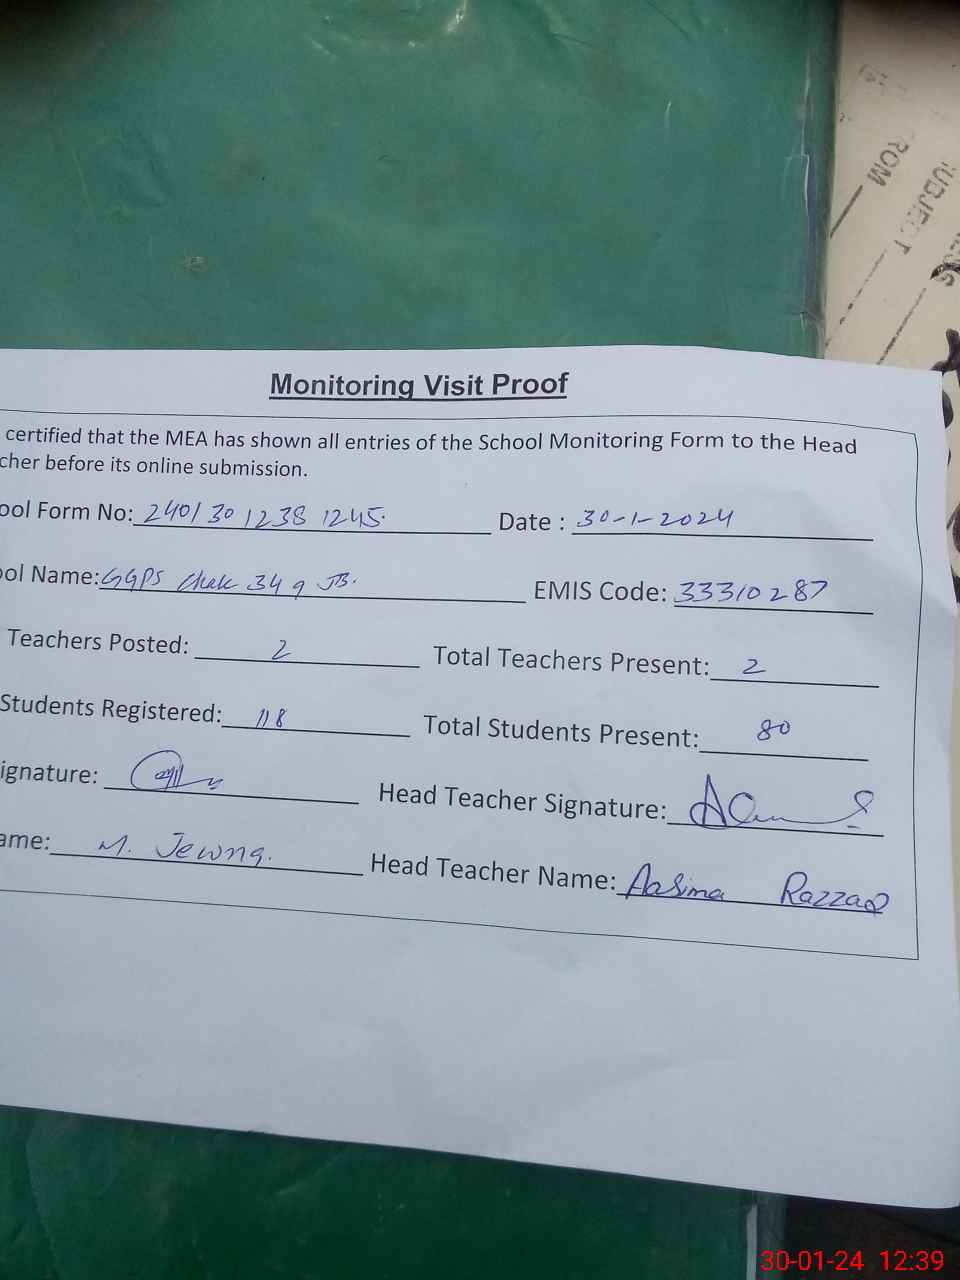 ROM
SUBJECT
Monitoring Visit Proof
certified that the MEA has shown all entries of the School Monitoring Form to the Head
cher before its online submission.
ool Form No: 2401301238 1245. Date : 30-1-2024
ool Name: GGPS Chak 349 JB. EMIS Code: 33310287
Teachers Posted: 2 Total Teachers Present: 2
Students Registered: 118 Total Students Present: 80
ignature: Head Teacher Signature:
ame: M. Head Teacher Name: Aasima Razzaq
30-01-24 12:39